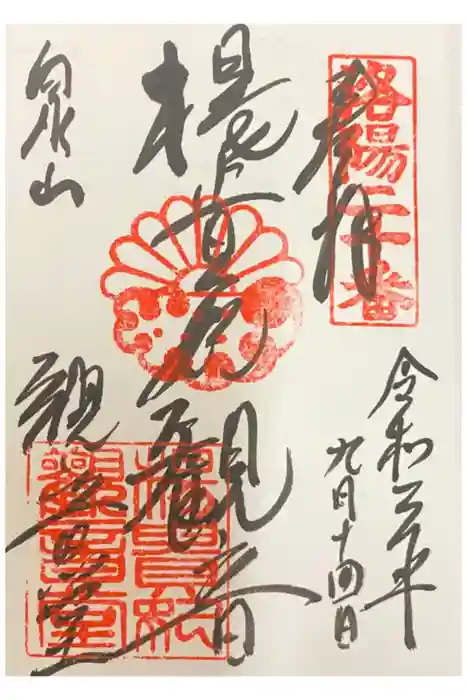 洛陽二十番
奉拝
令和年
九月十四日
楊貴妃観音
泉山
観音堂
楊貴妃
観音堂